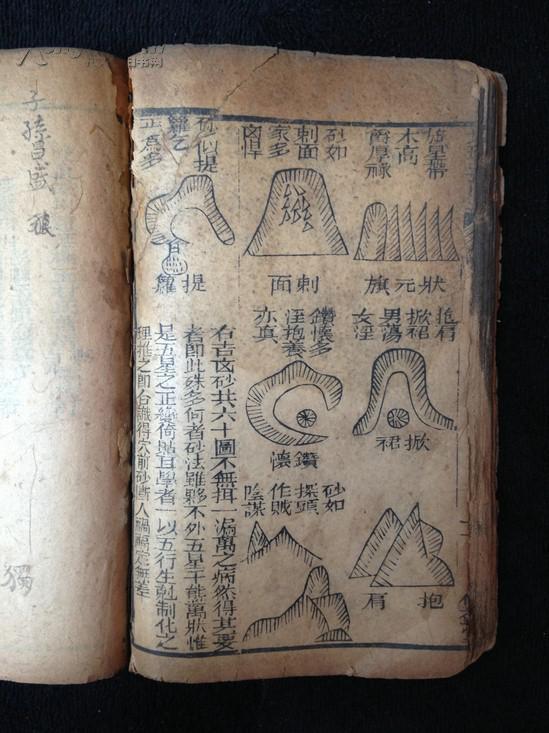 木高
爵厚祿
狀元旗
砂如
刺面
家多
凶悍
刺面
砂似提
籮乞
正爲多
提籮
抱肩
掀裙
男蕩
女淫
掀裙
鑽懷多
淫抱養
亦真
鑽懷
抱肩
砂如
探頭
作賊
陰謀
右吉凶砂共六十圖不無掛一漏萬之病然得其要
者即此殊多何者砂法雖夥不外五星千態萬狀惟
是五星之正學者一以五行生剋制化之
理推之即合識得穴前砂斷人禍福定無差
子孫昌盛
獨